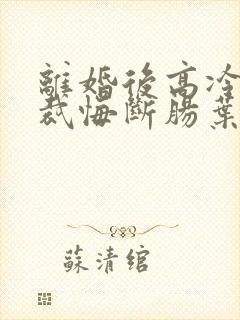 離婚後高冷
裁悔斷腸葉
蘇清綰